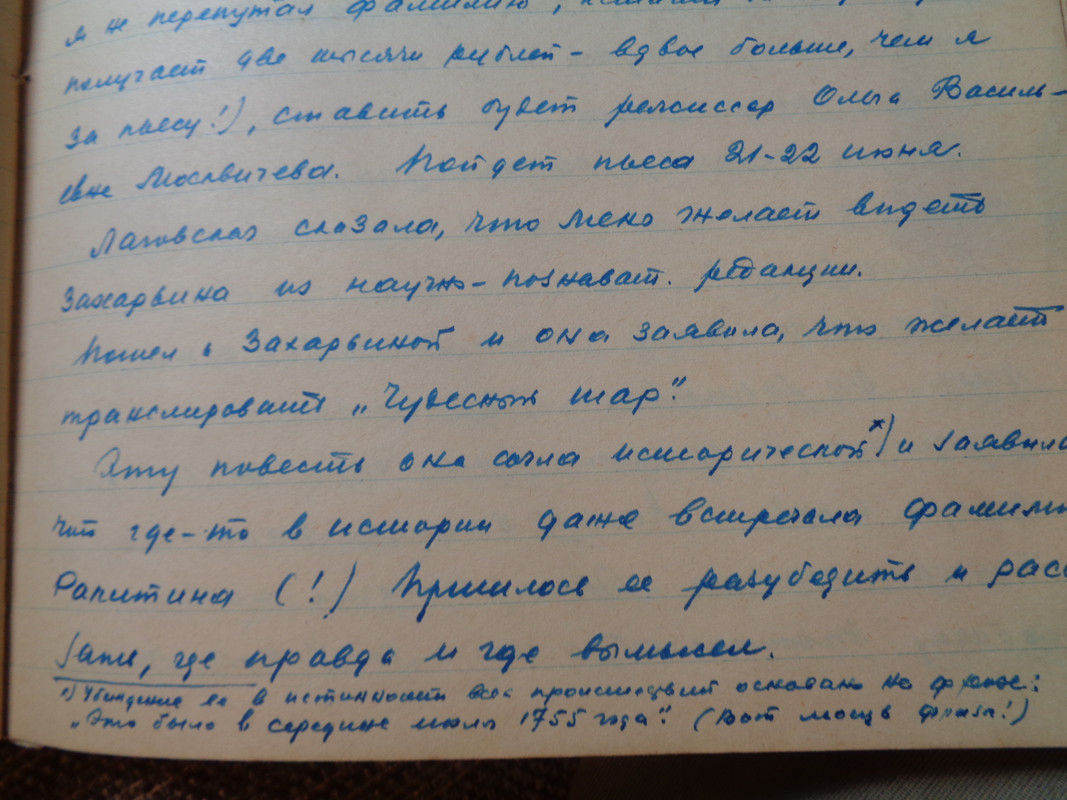 я не перепутал фамилию,
получает две тысячи рублей - вдвое больше, чем я
за пьесу!), ставить будет режиссер Ольга Василь-
евна Москвичева. Пойдет пьеса 21-22 июня.
Лаговская сказала, что меня желает видеть
Захарьина из научно-познават. редакции.
Пошел к Захарьиной и она заявила, что желает
транслировать „Чудесный шар".
Эту повесть она сочла исторической х) и заявила
что где-то в истории даже встречала фамилию
Ракитина (!) Пришлось ее разубедить и расс
зать, где правда и где вымысел.
х) Убеждение ее в истинности всех происшествий основано на фразе:
„Это было в середине июля 1755 года". (Вот мощь фразы!)